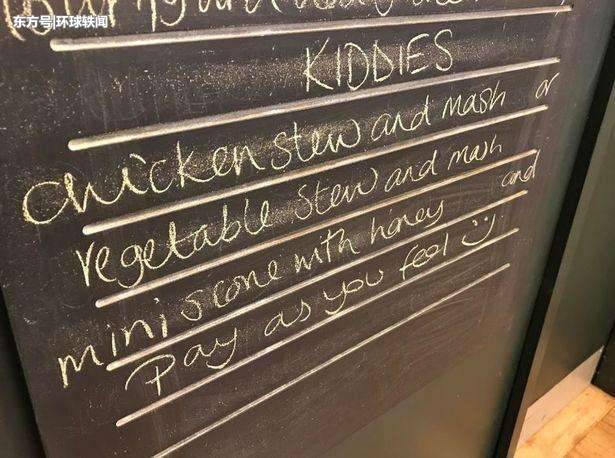 东方号|环球轶闻
KIDDIES
chicken stew and mash or
vegetable stew and mash
and
mini scone with honey
Pay as you feel :)